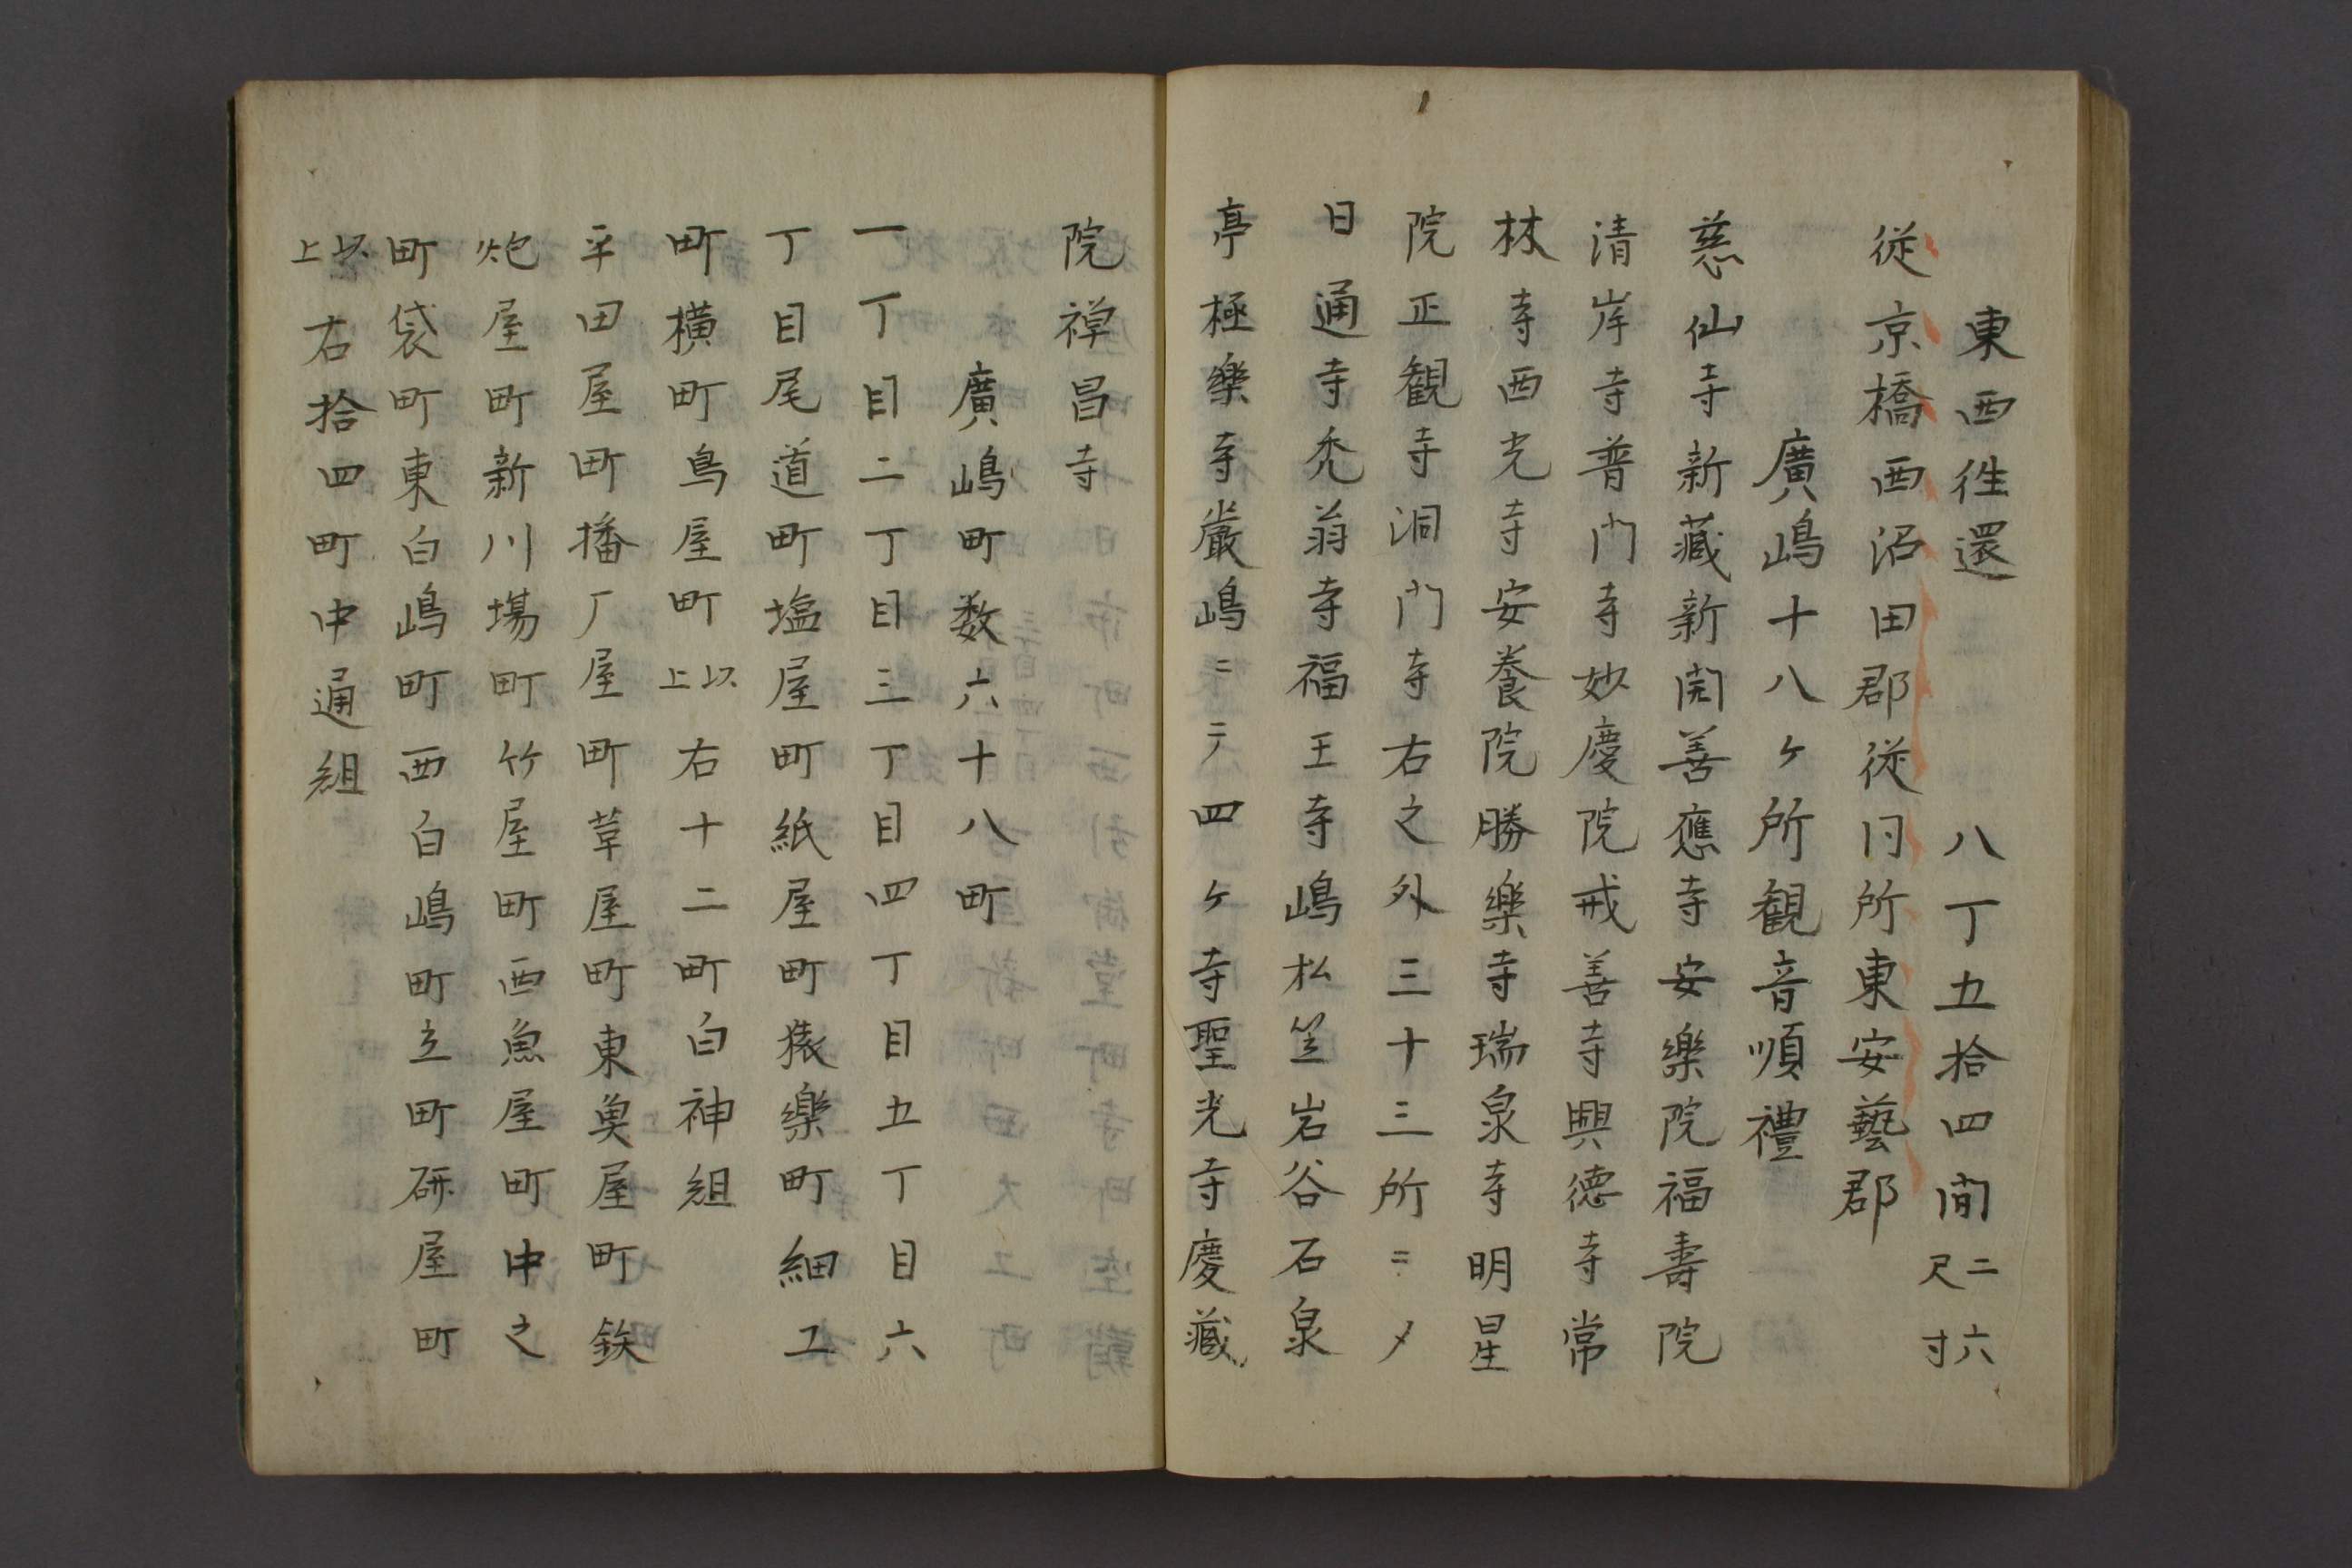 東西徃還 八丁五拾四間二尺六寸
従京橋西沼田郡従同所東安藝郡
廣嶋十八ヶ所観音順禮
慈仙寺新蔵新開善應寺安樂院福壽院
清岸寺普門寺妙慶院戒善寺興徳寺常
林寺西光寺安養院勝樂寺瑞泉寺明星
院正観寺洞門寺右之外三十三所ニ〆
日通寺禿翁寺福王寺嶋松笠岩谷石泉
亭極樂寺嚴嶋ニテ四ヶ寺聖光寺慶藏
院禅昌寺
廣嶋町数六十八町
一丁目二丁目三丁目四丁目五丁目六
丁目尾道町塩屋町紙屋町猿樂町細工
町横町鳥屋町以上右十二町白神組
平田屋町播广屋町革屋町東魚屋町鉄
炮屋町新川場町竹屋町西魚屋町中之
町袋町東白嶋町西白嶋町立町研屋町
以上右拾四町中通組